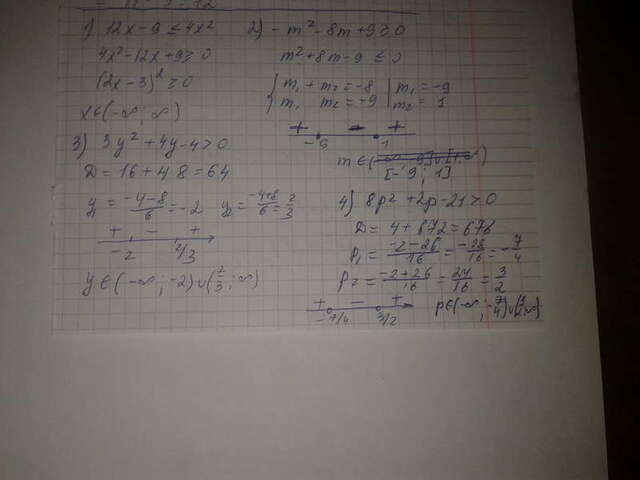 1) 12x - 9 ≤ 4x²
4x² - 12x + 9 ≥ 0
(2x - 3)² ≥ 0
x ∈ (-∞; ∞)
2) - m² - 8m + 9 ≥ 0
m² + 8m - 9 ≤ 0
{ m₁ + m₂ = -8 | m₁ = -9
m₁ m₂ = -9 | m₂ = 1
+ - +
-9 1
m ∈
[-9; 1]
3) 3y² + 4y - 4 > 0
D = 16 + 48 = 64
y₁ = (-4-8)/6 = -2 y₂ = (-4+8)/6 = 2/3
+ - +
-2 2/3
y ∈ (-∞; -2) ∪ (2/3; ∞)
4) 8p² + 2p - 21 > 0
D = 4 + 672 = 676
p₁ = (-2-26)/16 = -28/16 = -7/4
p₂ = (-2+26)/16 = 24/16 = 3/2
+ - +
-7/4 3/2
p ∈ (-∞; -7/4) ∪ (3/2; ∞)